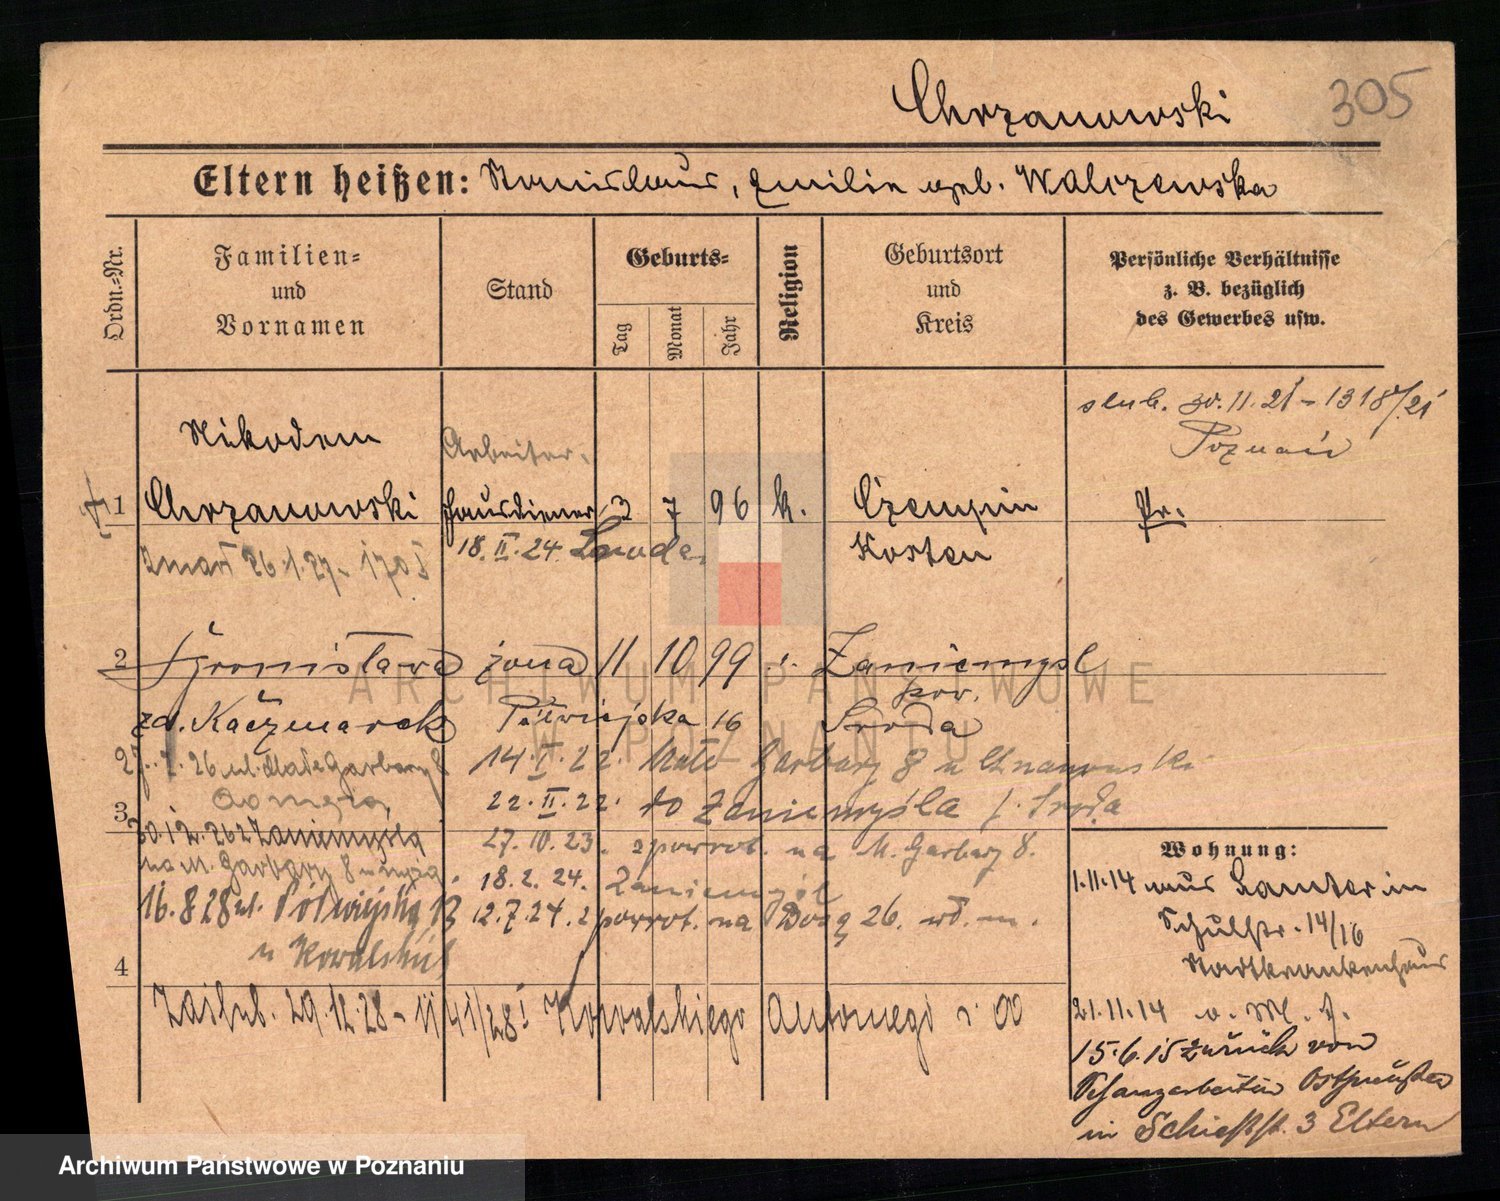 Chrzanowski
305
Eltern heißen: Stanislaus, Emilie geb. Walczewska
Ordn.-Nr.
Familien-
und
Vornamen
Stand
Geburts-
Tag
Monat
Jahr
Religion
Geburtsort
und
Kreis
Persönliche Verhältnisse
z. B. bezüglich
des Gewerbes usw.
slub. 30.11.21 - 1318/21
Poznań
Nikodem
Arbeiter
1 Chrzanowski Hausdiener 3 7 96 k. Czempin Pr.
Kosten
zmarł 26.1.27 - 170
18.II.24
2 Bronisława żona 11 10 99 Zaniemyśl
pow.
zd. Kaczmarek Półwiejska 16 Środa
27.7.26 ul. Małe Garbary 8
do męża
14.I.22. Małe Garbary 8 u Chrzanowski
22.II.22. do Zaniemyśla p. Środa
3
30.12.26 z Zaniemyśla
na M. Garbary 8 u męża.
27.10.23. zpowrot. na M. Garbary 8.
18.2.24. Zaniemyśl
16.8.28 ul. Półwiejska
u Kowalskiej
12.7.24. zpowrot. na 26.
4
Zaślub. 29.12.28 - 1141/28 Kowalskiego Antoniego
Wohnung:
1.11.14 aus in
Schulstr. 14/16
Stadtkrankenhaus
21.11.14 v.
15.6.15 zurück von
Schanzarbeiten Ostpreußen
in Schießst. 3 Eltern
ARCHIWUM PAŃSTWOWE
W POZNANIU
Archiwum Państwowe w Poznaniu